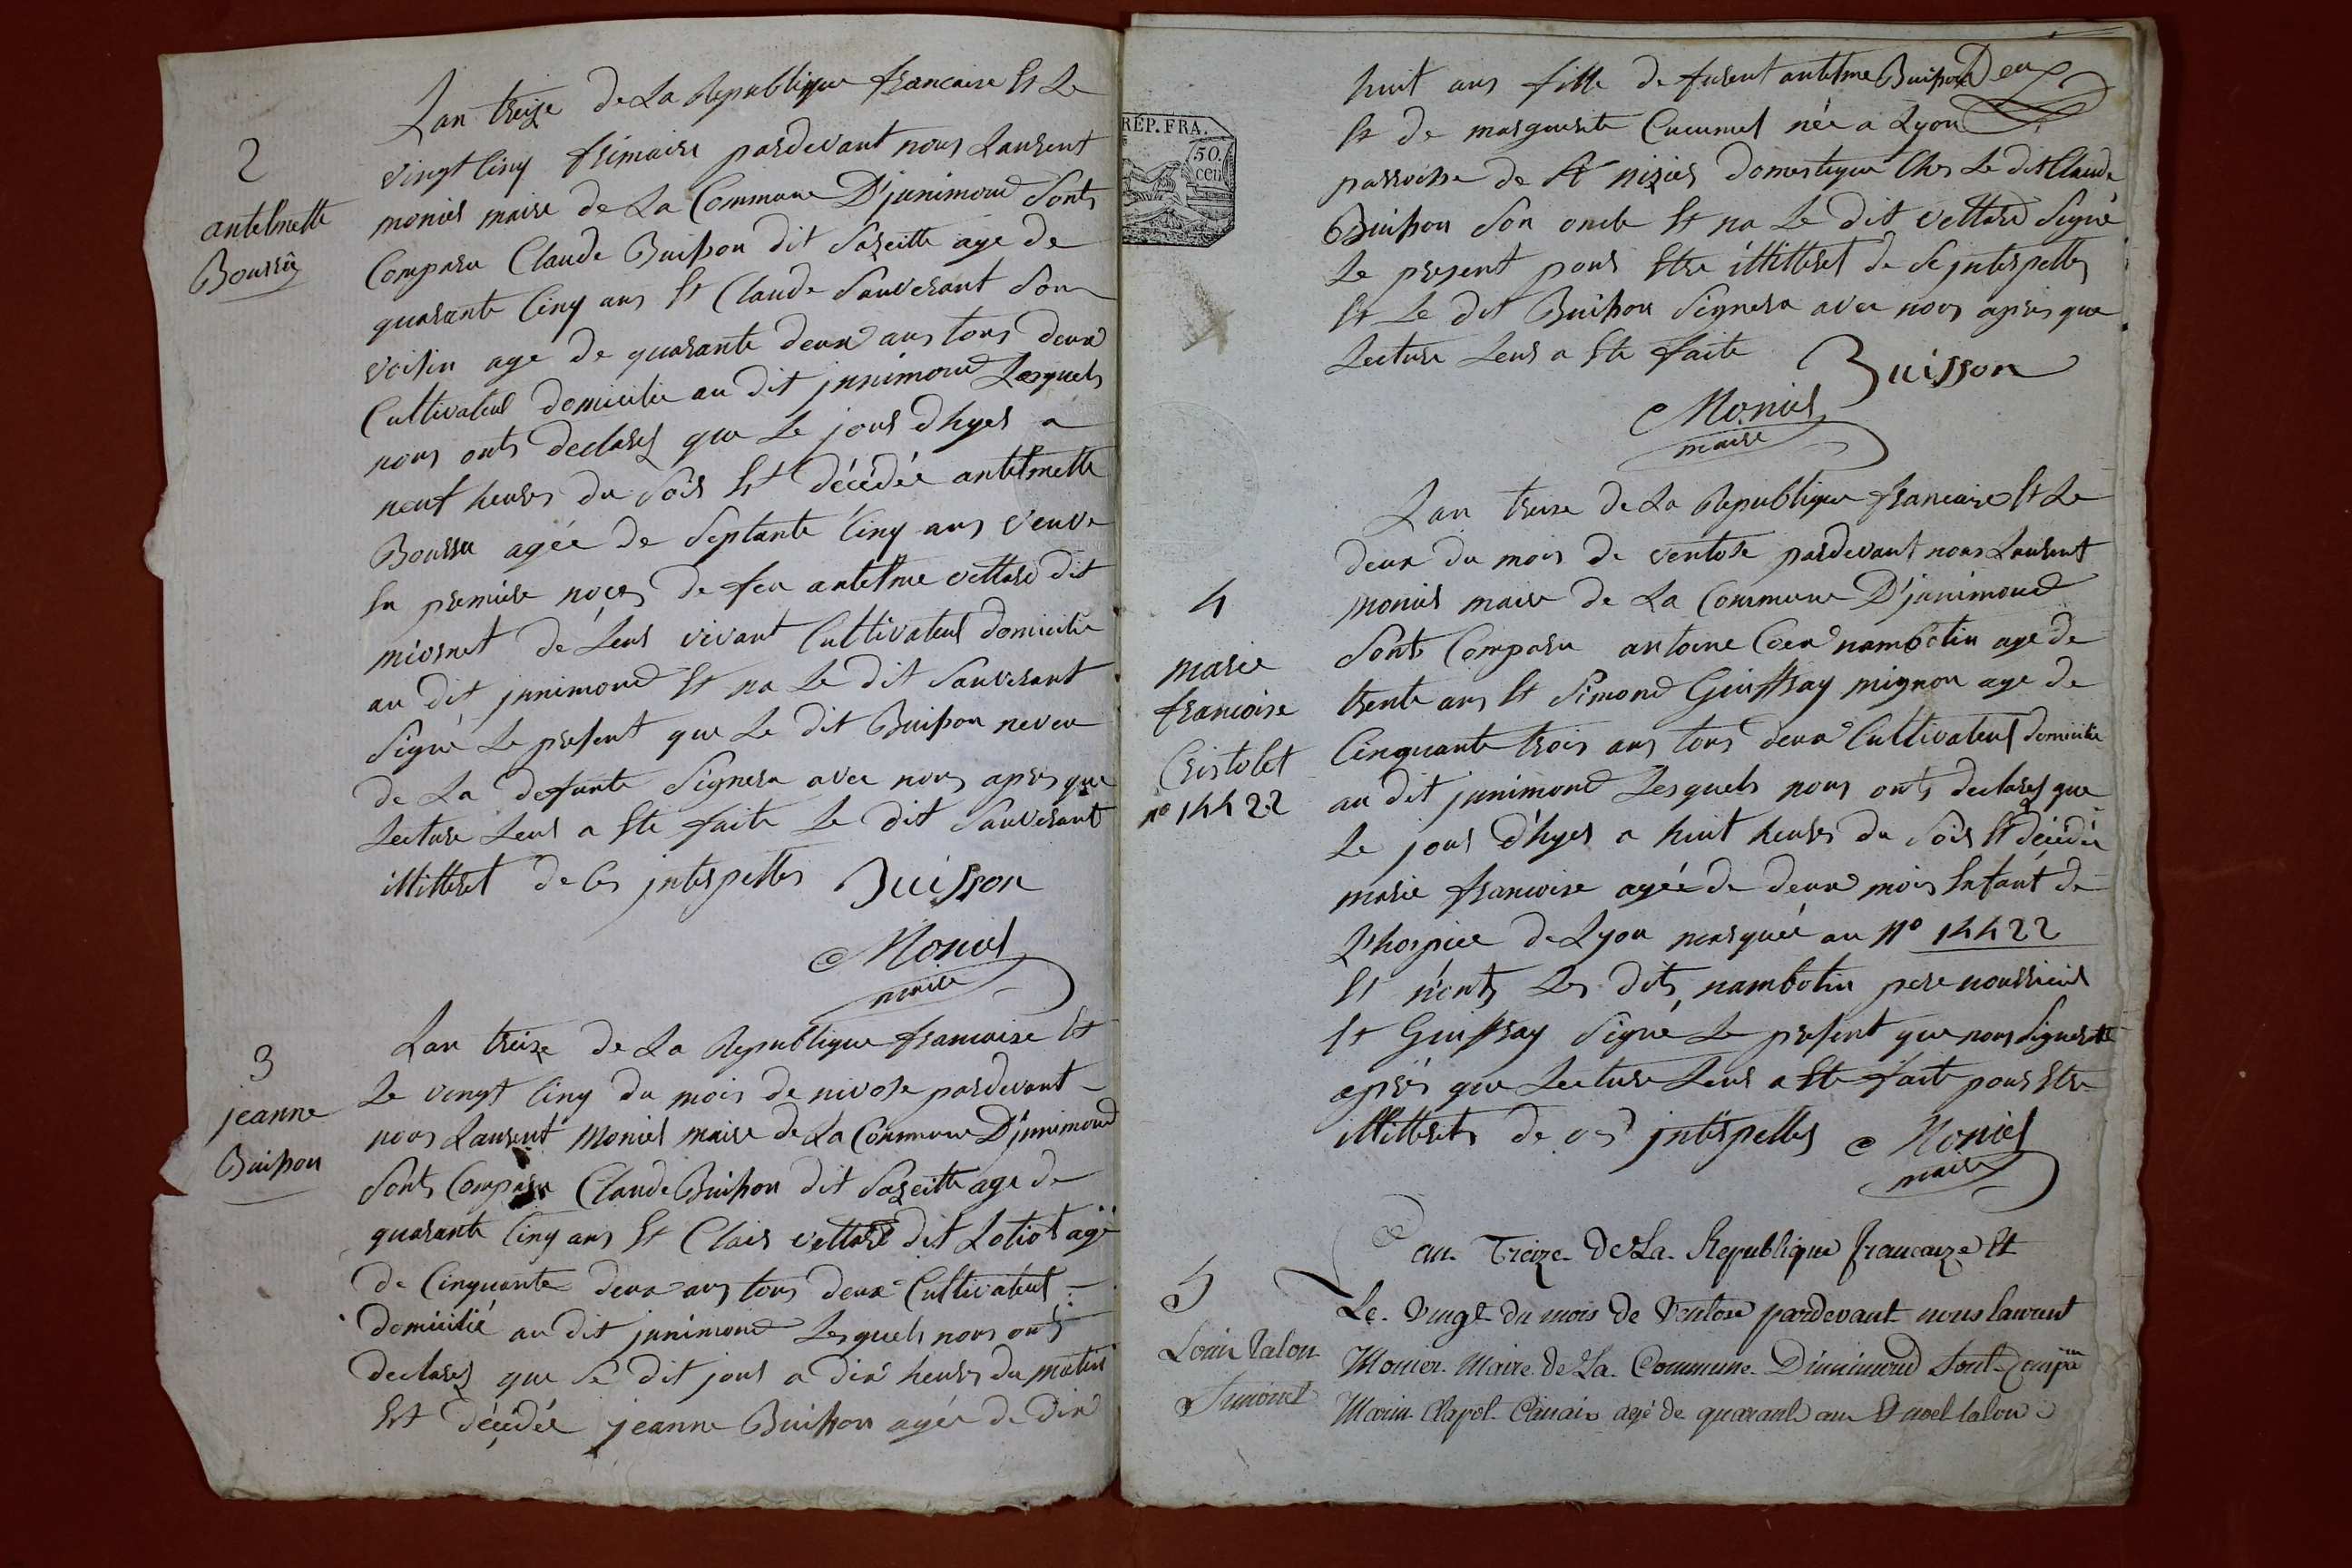 2
antelmette
Boussu
Lan treize de La Republique francaise Et Le
vingt cinq frimaire pardevant nous Laurent
monier maire de La Commune D'junimond Sonts
Comparu Claude Buisson dit Sazeitte age de
quarante Cinq ans Et Claude Sauverant Son
voisin age de quarante deux ans tous deux
Cultivateur domicilie au dit junimond Lesquels
nous onts declarez que Le jour d'hyer a
neuf heures du Soir Est décédée antelmette
Boussu agée de Septante Cinq ans veuve
En premiere noces de feu antelme vettard dit
miornet de Leur vivant Cultivateur domicilie
au dit junimond Et na Le dit Sauverant
Signé Le present que Le dit Buisson neveu
de La defunte Signera avec nous apres que
Lecture Leur a Ete faite Le dit Sauverant
illitteret de Ces interpelles Buisson
Monier
maire
3
jeanne
Buisson
Lan treize de La Republique francaise Et
Le vingt Cinq du mois de nivose pardevant
nous Laurent Monier maire de La Commune D'junimond
Sonts Comparu Claude Buisson dit Sazeitte age de
quarante Cinq ans Et Clair vettard dit Lotiot agé
de Cinquante deux ans tous deux Cultivateur
domicilié au dit junimond Lesquels nous onts
declarez que Le dit jour a dix heures du matin
Est décédée jeanne Buisson agée de dix
RÉP. FRA.
50.
cen
huit ans fille de furent antelme Buisson Deux
Et de marguerite Cucumel née a Lyon
parroisse de St nizier domestique Ches Le dit Claude
Buisson Son oncle Et na Le dit vettard Signé
Le present pour Etre illitteret de Se interpelles
Et Le dit Buisson Signera avec nous apres que
Lecture Leur a Ete faite Buisson
Monier
maire
4
marie
francoise
Cristolet
no 14422
Lan treize de La Republique francaise Et Le
deux du mois de ventose pardevant nous Laurent
monier maire de La Commune D'junimond
Sonts Comparu antoine nambotin age de
trente ans Et Simond Guiffray mignon age de
Cinquante trois ans tous deux Cultivateur domicilie
au dit junimond Lesquels nous onts declarez que
Le jour d'hyer a huit heures du Soir Est décédée
marie francoise agée de deux mois Enfant de
L'hospice de Lyon marquée au no 14422
Et n'onts Les dits nambotin pere nourricier
Et Guiffray Signé Le present que nous Signerons
après que Lecture Leur a Ete fait pour Etre
illitterets de ces interpelles Monier
maire
5
Louis Talon
Simonet
Lan Treize De La Republique francaize Et
Le vingt du mois de Ventose pardevant nous laurent
Monier Maire de La Commune D'inimond Sont Comparu
Marin Clapot agé de quarante ans Et noel talon